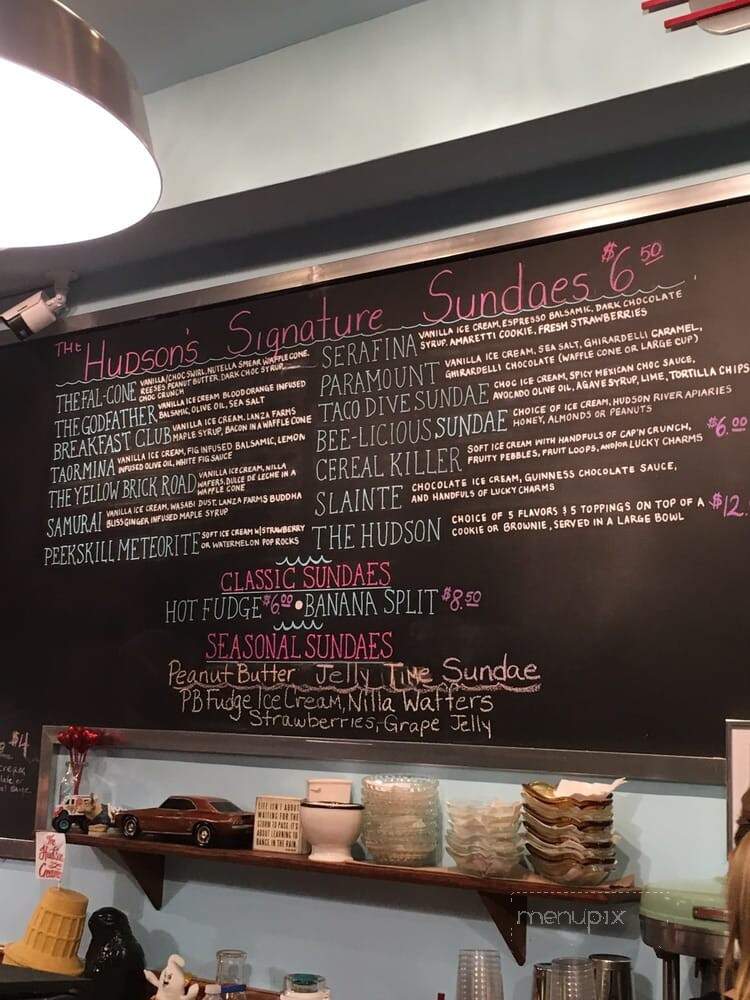 THE HUDSON'S Signature Sundaes $6 50
THE FAL-CONE VANILLA/CHOC SWIRL, NUTELLA SMEAR WAFFLE CONE,
REESES PEANUT BUTTER, DARK CHOC SYRUP,
CHOC CRUNCH
THE GODFATHER VANILLA ICE CREAM BLOOD ORANGE INFUSED
BALSMIC, OLIVE OIL, SEA SALT
BREAKFAST CLUB VANILLA ICE CREAM, LANZA FARMS
MAPLE SYRUP, BACON IN A WAFFLE CONE
TAORMINA VANILLA ICE CREAM, FIG INFUSED BALSAMIC, LEMON
INFUSED OLIVE OIL, WHITE FIG SAUCE
THE YELLOW BRICK ROAD VANILLA ICE CREAM, NILLA
WAFERS, DULCE DE LECHE IN A
WAFFLE CONE
SAMURAI VANILLA ICE CREAM, WASABI DUST, LANZA FARMS BUDDHA
BLISS GINGER INFUSED MAPLE SYRUP
PEEKSKILL METEORITE SOFT ICE CREAM W/STRAWBERRY
OR WATERMELON POP ROCKS
SERAFINA VANILLA ICE CREAM, ESPRESSO BALSAMIC, DARK CHOCOLATE
SYRUP, AMARETTI COOKIE, FRESH STRAWBERRIES
PARAMOUNT VANILLA ICE CREAM, SEA SALT, GHIRARDELLI CARAMEL,
GHIRARDELLI CHOCOLATE (WAFFLE CONE OR LARGE CUP)
TACO DIVE SUNDAE CHOC ICE CREAM, SPICY MEXICAN CHOC SAUCE,
AVOCADO OLIVE OIL, AGAVE SYRUP, LIME, TORTILLA CHIPS
BEE-LICIOUS SUNDAE CHOICE OF ICE CREAM, HUDSON RIVER APIARIES
HONEY, ALMONDS OR PEANUTS
CEREAL KILLER SOFT ICE CREAM WITH HANDFULS OF CAP'N CRUNCH, $6.00
FRUITY PEBBLES, FRUIT LOOPS, AND/OR LUCKY CHARMS
SLAINTE CHOCOLATE ICE CREAM, GUINNESS CHOCOLATE SAUCE,
AND HANDFULS OF LUCKY CHARMS
THE HUDSON CHOICE OF 5 FLAVORS & 5 TOPPINGS ON TOP OF A $12.
COOKIE OR BROWNIE, SERVED IN A LARGE BOWL
CLASSIC SUNDAES
HOT FUDGE $6.00 • BANANA SPLIT $8.50
SEASONAL SUNDAES
Peanut Butter Jelly Time Sundae
PB Fudge Ice Cream, Nilla Waffers
Strawberries, Grape Jelly
$4
LIFE ISN'T ABOUT
WAITING FOR THE
STORM TO PASS IT'S
ABOUT LEARNING TO
DANCE IN THE RAIN
The
Hudson
Creamery
menupix